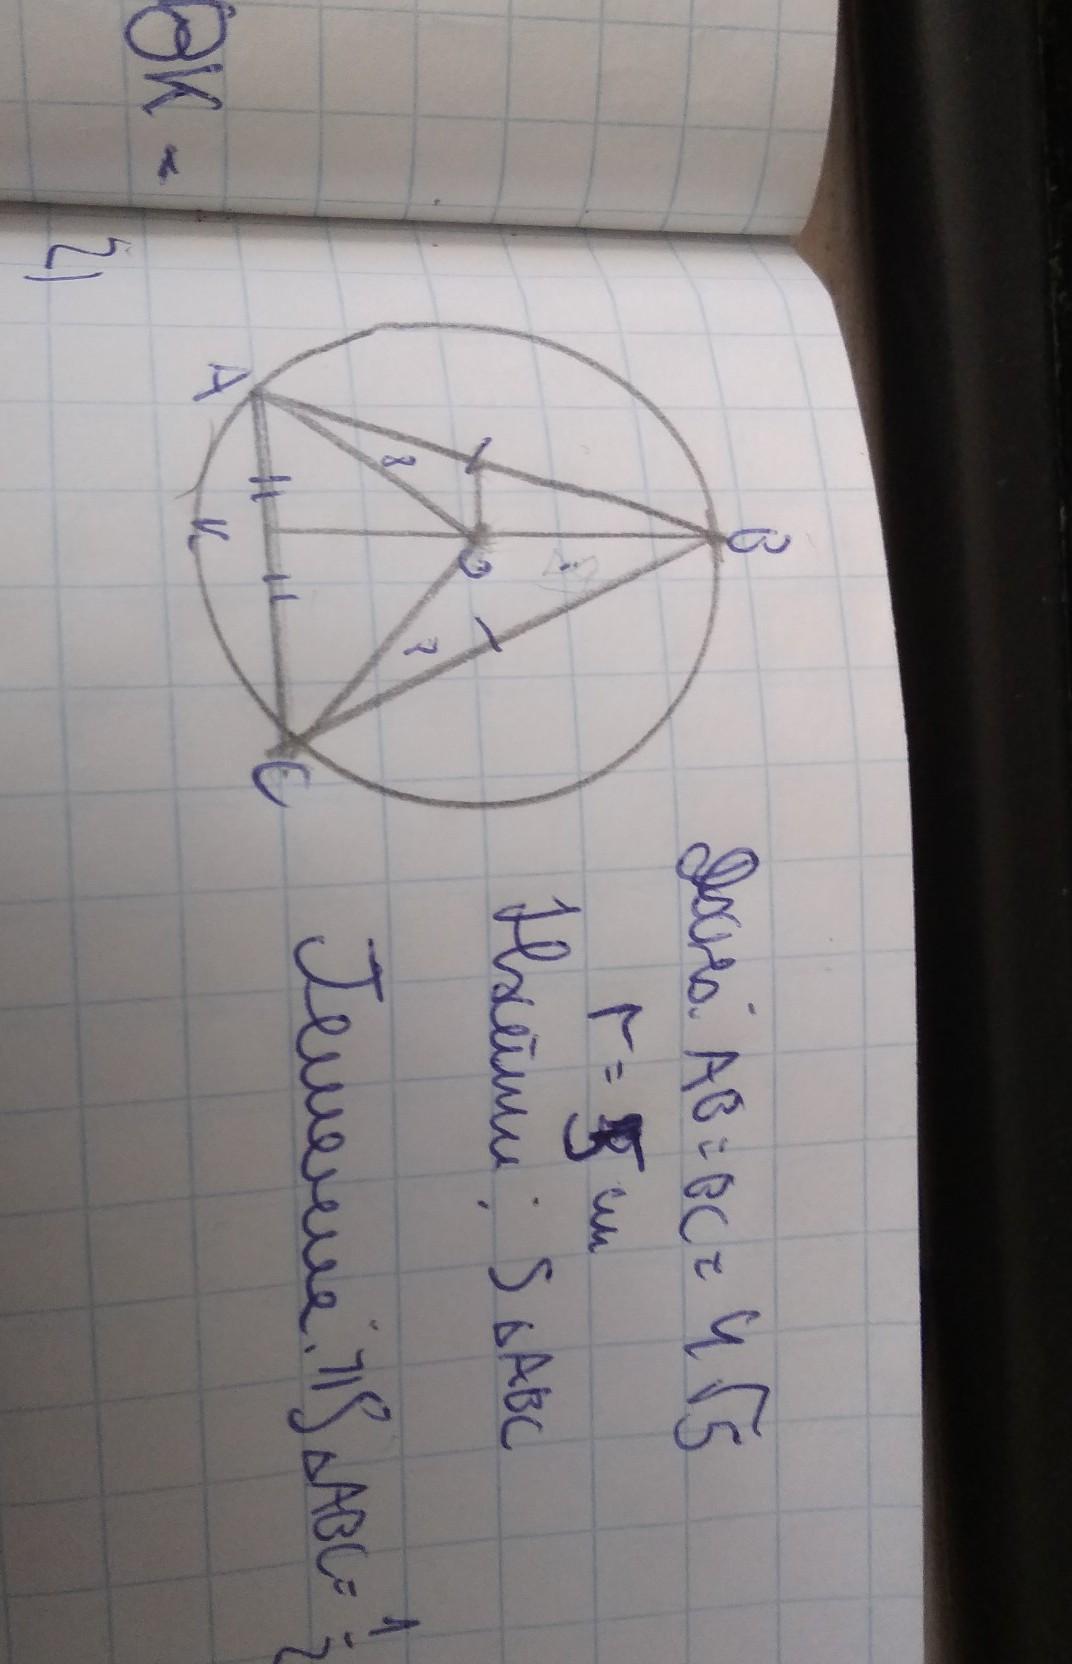 OK =
2)
B
A
O
K
C
Дано: AB = BC = 4√5
r = 5 см
Найти: S ΔABC
Решение: 1) S ΔABC = 1